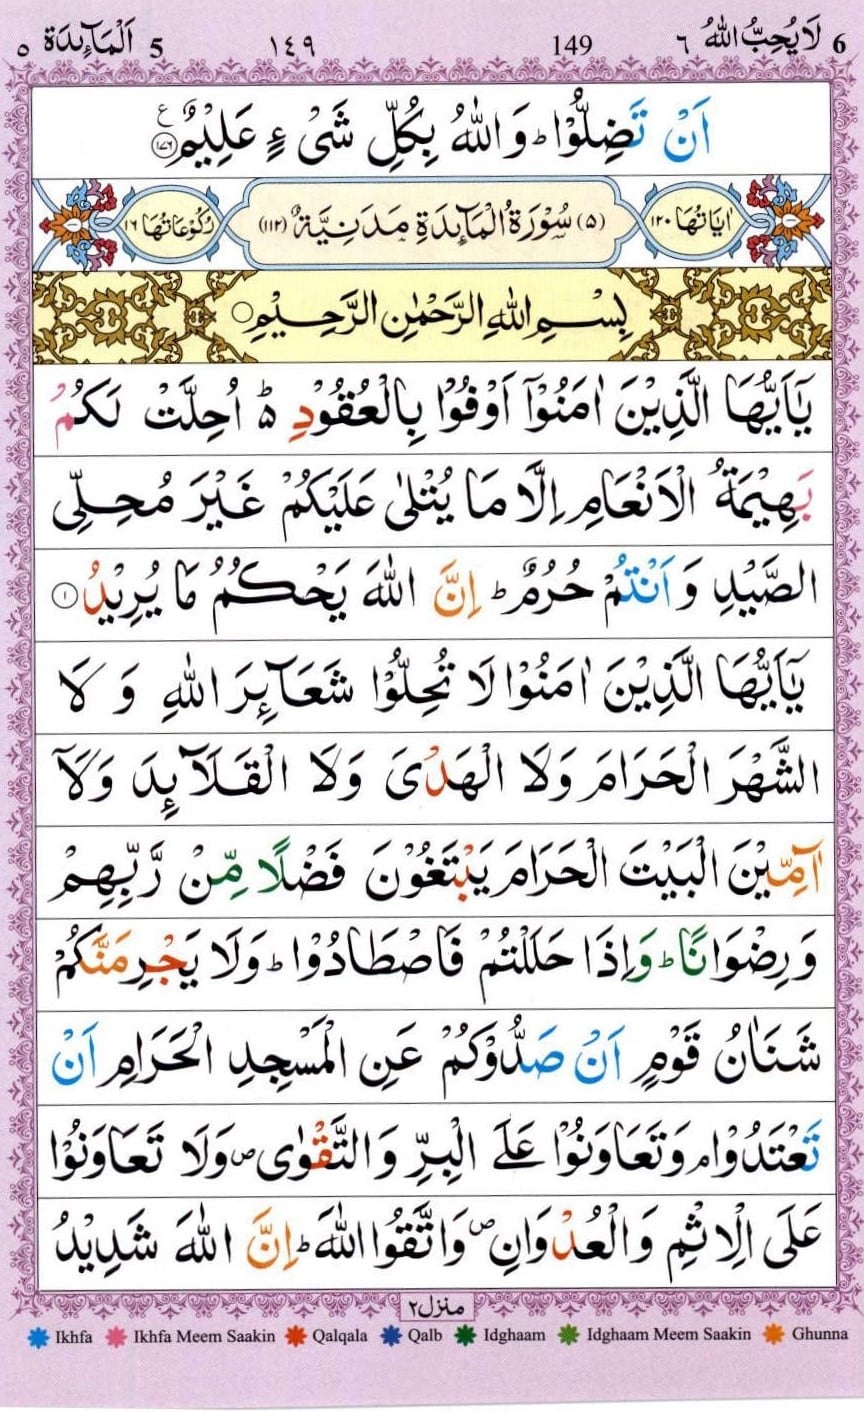 6 لَا يُحِبُّ اللّٰهُ ٦ 149 ١٤٩ 5 اَلْمَآئِدَة ٥
اَنْ تَضِلُّوْاؕ وَاللّٰهُ بِكُلِّ شَیْءٍ عَلِیْمٌ ﴿۱۷۶﴾ ع
اٰيَاتُهَا ١٢٠ (٥) سُوْرَةُ الْمَآئِدَةِ مَدَنِيَّةٌ (١١٢) رُكُوْعَاتُهَا ١٦
بِسْمِ اللّٰهِ الرَّحْمٰنِ الرَّحِیْمِ ○
یٰۤاَیُّهَا الَّذِیْنَ اٰمَنُوْۤا اَوْفُوْا بِالْعُقُوْدِ ؕ۬ اُحِلَّتْ لَكُمْ
بَهِیْمَةُ الْاَنْعَامِ اِلَّا مَا یُتْلٰی عَلَیْكُمْ غَیْرَ مُحِلِّی
الصَّیْدِ وَ اَنْتُمْ حُرُمٌؕ اِنَّ اللّٰهَ یَحْكُمُ مَا یُرِیْدُ ﴿۱﴾
یٰۤاَیُّهَا الَّذِیْنَ اٰمَنُوْا لَا تُحِلُّوْا شَعَآئِرَ اللّٰهِ وَ لَا
الشَّهْرَ الْحَرَامَ وَلَا الْهَدْیَ وَلَا الْقَلَآئِدَ وَلَاۤ
آمِّیْنَ الْبَیْتَ الْحَرَامَ یَبْتَغُوْنَ فَضْلًا مِّنْ رَّبِّهِمْ
وَرِضْوَانًاؕ وَاِذَا حَلَلْتُمْ فَاصْطَادُوْاؕ وَلَا یَجْرِمَنَّكُمْ
شَنَاٰنُ قَوْمٍ اَنْ صَدُّوْكُمْ عَنِ الْمَسْجِدِ الْحَرَامِ اَنْ
تَعْتَدُوْاۘ وَتَعَاوَنُوْا عَلَی الْبِرِّ وَالتَّقْوٰی۪ وَلَا تَعَاوَنُوْا
عَلَی الْاِثْمِ وَالْعُدْوَانِ۪ وَاتَّقُوا اللّٰهَؕ اِنَّ اللّٰهَ شَدِیْدُ
منزل٢
Ikhfa Ikhfa Meem Saakin Qalqala Qalb Idghaam Idghaam Meem Saakin Ghunna